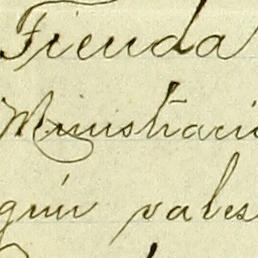 Tienda
Ministraci
gún vales